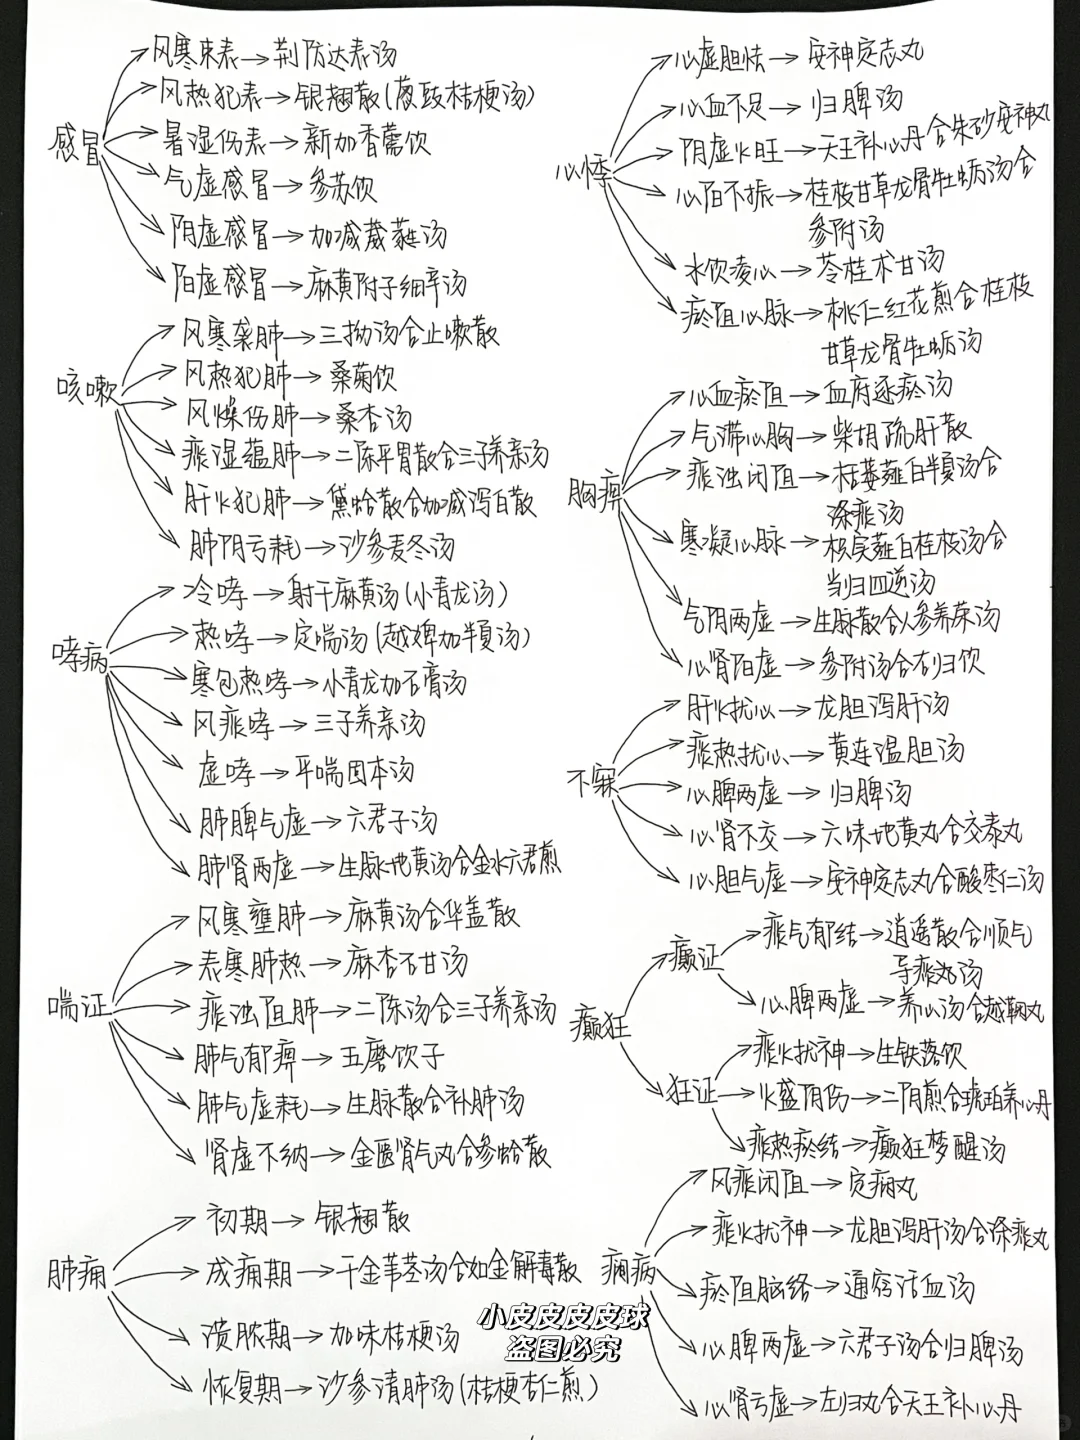 感冒
风寒束表→荆防达表汤
风热犯表→银翘散(葱豉桔梗汤)
暑湿伤表→新加香薷饮
气虚感冒→参苏饮
阴虚感冒→加减葳蕤汤
阳虚感冒→麻黄附子细辛汤
咳嗽
风寒袭肺→三拗汤合止嗽散
风热犯肺→桑菊饮
风燥伤肺→桑杏汤
痰湿蕴肺→二陈平胃散合三子养亲汤
肝火犯肺→黛蛤散合加减泻白散
肺阴亏耗→沙参麦冬汤
哮病
冷哮→射干麻黄汤(小青龙汤)
热哮→定喘汤(越婢加半夏汤)
寒包热哮→小青龙加石膏汤
风痰哮→三子养亲汤
虚哮→平喘固本汤
肺脾气虚→六君子汤
肺肾两虚→生脉地黄汤合金水六君煎
喘证
风寒壅肺→麻黄汤合华盖散
表寒肺热→麻杏石甘汤
痰浊阻肺→二陈汤合三子养亲汤
肺气郁痹→五磨饮子
肺气虚耗→生脉散合补肺汤
肾虚不纳→金匮肾气丸合参蛤散
肺痈
初期→银翘散
成痈期→千金苇茎汤合如金解毒散
溃脓期→加味桔梗汤
恢复期→沙参清肺汤(桔梗杏仁煎)
心悸
心虚胆怯→安神定志丸
心血不足→归脾汤
阴虚火旺→天王补心丹合朱砂安神丸
心阳不振→桂枝甘草龙骨牡蛎汤合
参附汤
水饮凌心→苓桂术甘汤
瘀阻心脉→桃仁红花煎合桂枝
甘草龙骨牡蛎汤
胸痹
心血瘀阻→血府逐瘀汤
气滞心胸→柴胡疏肝散
痰浊闭阻→栝蒌薤白半夏汤合
涤痰汤
寒凝心脉→枳实薤白桂枝汤合
当归四逆汤
气阴两虚→生脉散合人参养荣汤
心肾阳虚→参附汤合右归饮
不寐
肝火扰心→龙胆泻肝汤
痰热扰心→黄连温胆汤
心脾两虚→归脾汤
心肾不交→六味地黄丸合交泰丸
心胆气虚→安神定志丸合酸枣仁汤
癫狂
癫证
痰气郁结→逍遥散合顺气
导痰丸汤
心脾两虚→养心汤合越鞠丸
狂证
痰火扰神→生铁落饮
火盛阴伤→二阴煎合琥珀养心丹
痰热瘀结→癫狂梦醒汤
痫病
风痰闭阻→定痫丸
痰火扰神→龙胆泻肝汤合涤痰丸
瘀阻脑络→通窍活血汤
心脾两虚→六君子汤合归脾汤
心肾亏虚→左归丸合天王补心丹
小皮皮皮皮球
盗图必究